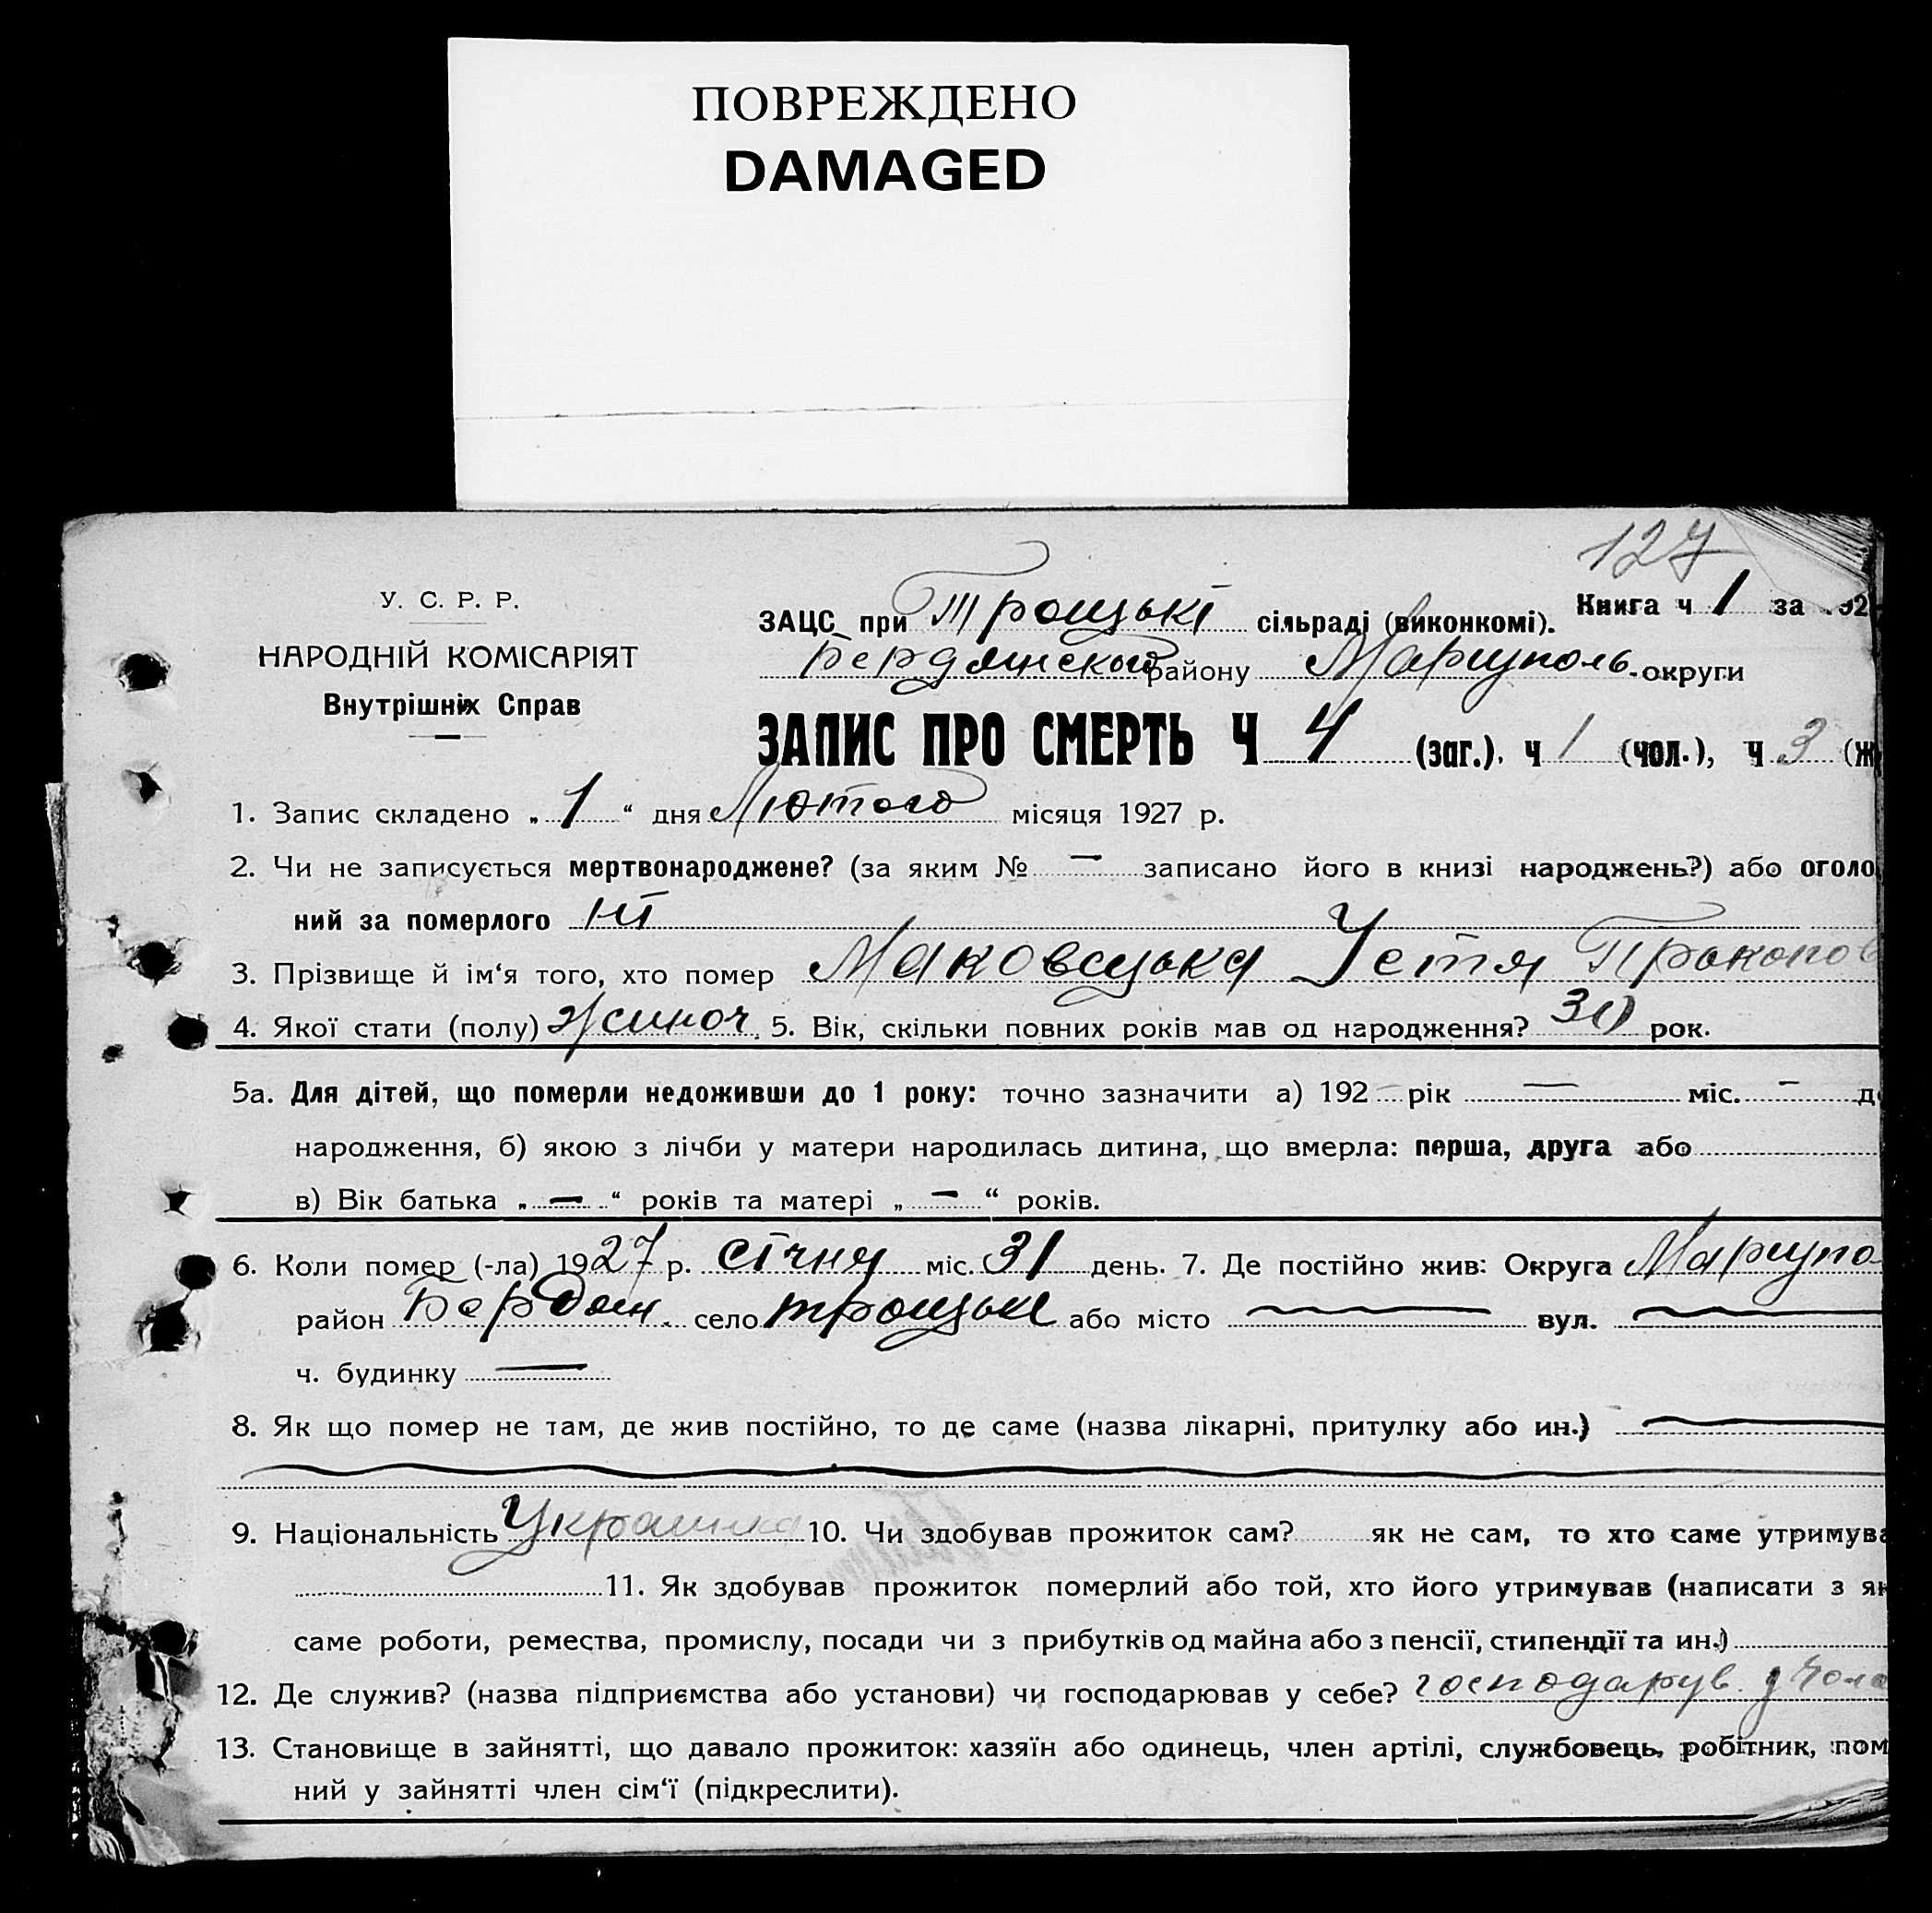 ПОВРЕЖДЕНО
DAMAGED
127
У. С. Р. Р.
НАРОДНІЙ КОМІСАРІЯТ
Внутрішніх Справ
Книга ч 1 за 192
ЗАЦС при Троцькі сільраді (виконкомі).
Бердянсько району Маріуполь-округи
ЗАПИС ПРО СМЕРТЬ Ч 4 (заг.), ч 1 (чол.), ч 3 (ж
1. Запис складено „ 1 “ дня Лютого місяця 1927 р.
2. Чи не записується мертвонароджене? (за яким № — записано його в книзі народжень?) або оголо
ний за померлого ні
3. Прізвище й ім‘я того, хто помер Маковецька Устя Прокопов
4. Якої стати (полу) жіноч. 5. Вік, скільки повних років мав од народження? 30 рок.
5а. Для дітей, що померли недоживши до 1 року: точно зазначити а) 192 — рік — міс. — д
народження, б) якою з лічби у матери народилась дитина, що вмерла: перша, друга або
в) Вік батька „ — “ років та матері „ — “ років.
6. Коли помер (-ла) 1927 р. січня міс. 31 день. 7. Де постійно жив: Округа Маріупо
район Бердян. село троцьке або місто — вул. —
ч. будинку —
8. Як що помер не там, де жив постійно, то де саме (назва лікарні, притулку або ин.) —
9. Національність Українка 10. Чи здобував прожиток сам? як не сам, то хто саме утримува
11. Як здобував прожиток померлий або той, хто його утримував (написати з як
саме роботи, ремества, промислу, посади чи з прибутків од майна або з пенсії, стипендії та ин.)
12. Де служив? (назва підприємства або установи) чи господарював у себе? господарув. у чоло
13. Становище в зайнятті, що давало прожиток: хазяїн або одинець, член артілі, службовець, робітник, пом
ний у зайнятті член сім‘ї (підкреслити).